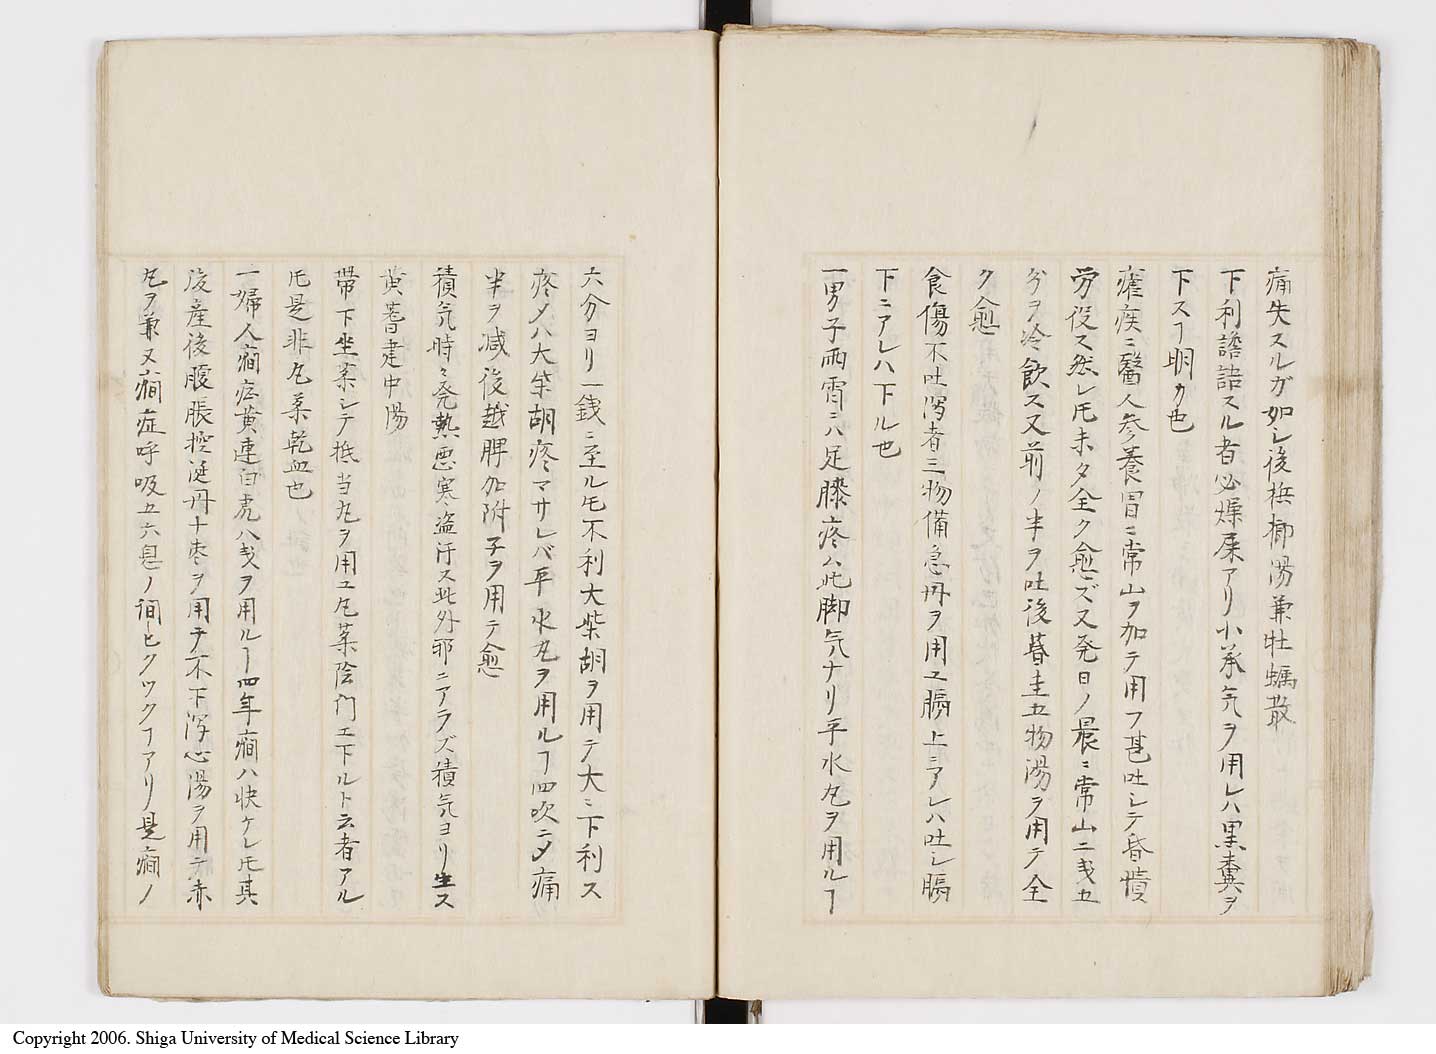 痛失スルガ如シ後梹榔湯兼牡蠣散
下利譫語スル者必燥屎アリ小承気ヲ用レハ黒糞ヲ
下スヿ明カ也
瘧疾ニ醫人参養胃ニ常山ヲ加テ用フ甚吐シテ昏憒
労役ス然レ𪜈未タ全ク愈ズ又発日ノ晨ニ常山二戔五
分ヲ冷飲ス又前ノ半ヲ吐後暮圭五物湯ヲ用テ全
ク愈
食傷不吐瀉者三物備急丹ヲ用ユ膈上ニアレハ吐シ膈
下ニアレハ下ル也
一男子両䯒ニハ足膝疼ハ此脚気ナリ平水丸ヲ用ルヿ
六分ヨリ一銭ニ至ル𪜈不利大柴胡ヲ用テ大ニ下利ス
疼〆ハ大柴胡疼マサレバ平水丸ヲ用ルヿ四吹ニ〆痛
半ヲ减後越脾加附子ヲ用テ愈
積気時々発熱悪寒盗汗ス此外邪ニアラズ積気ヨリ生ス
黄耆建中湯
帯下坐薬シテ抵当丸ヲ用ユ丸薬陰門エ下ルト云者アル
𪜈是非丸薬乾血也
一婦人癇症黄連白虎八戔ヲ用ルヿ四年癇ハ快ケレ𪜈其
後産後腹脹控涎丹十枣ヲ用テ不下瀉心湯ヲ用テ赤
丸ヲ兼又癇症呼吸五六息ノ間ヒクツクヿアリ是癇ノ
Copyright 2006. Shiga University of Medical Science Library